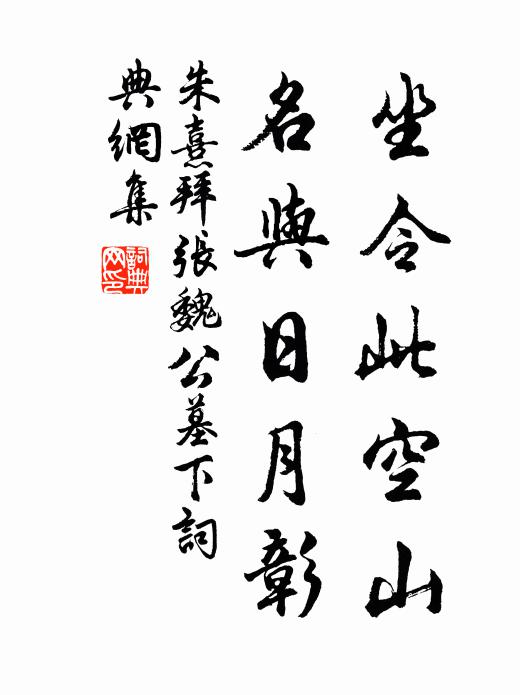 坐令此空山
名與日月彰
朱熹拜張魏公墓下詞
典網集
詞典
网印